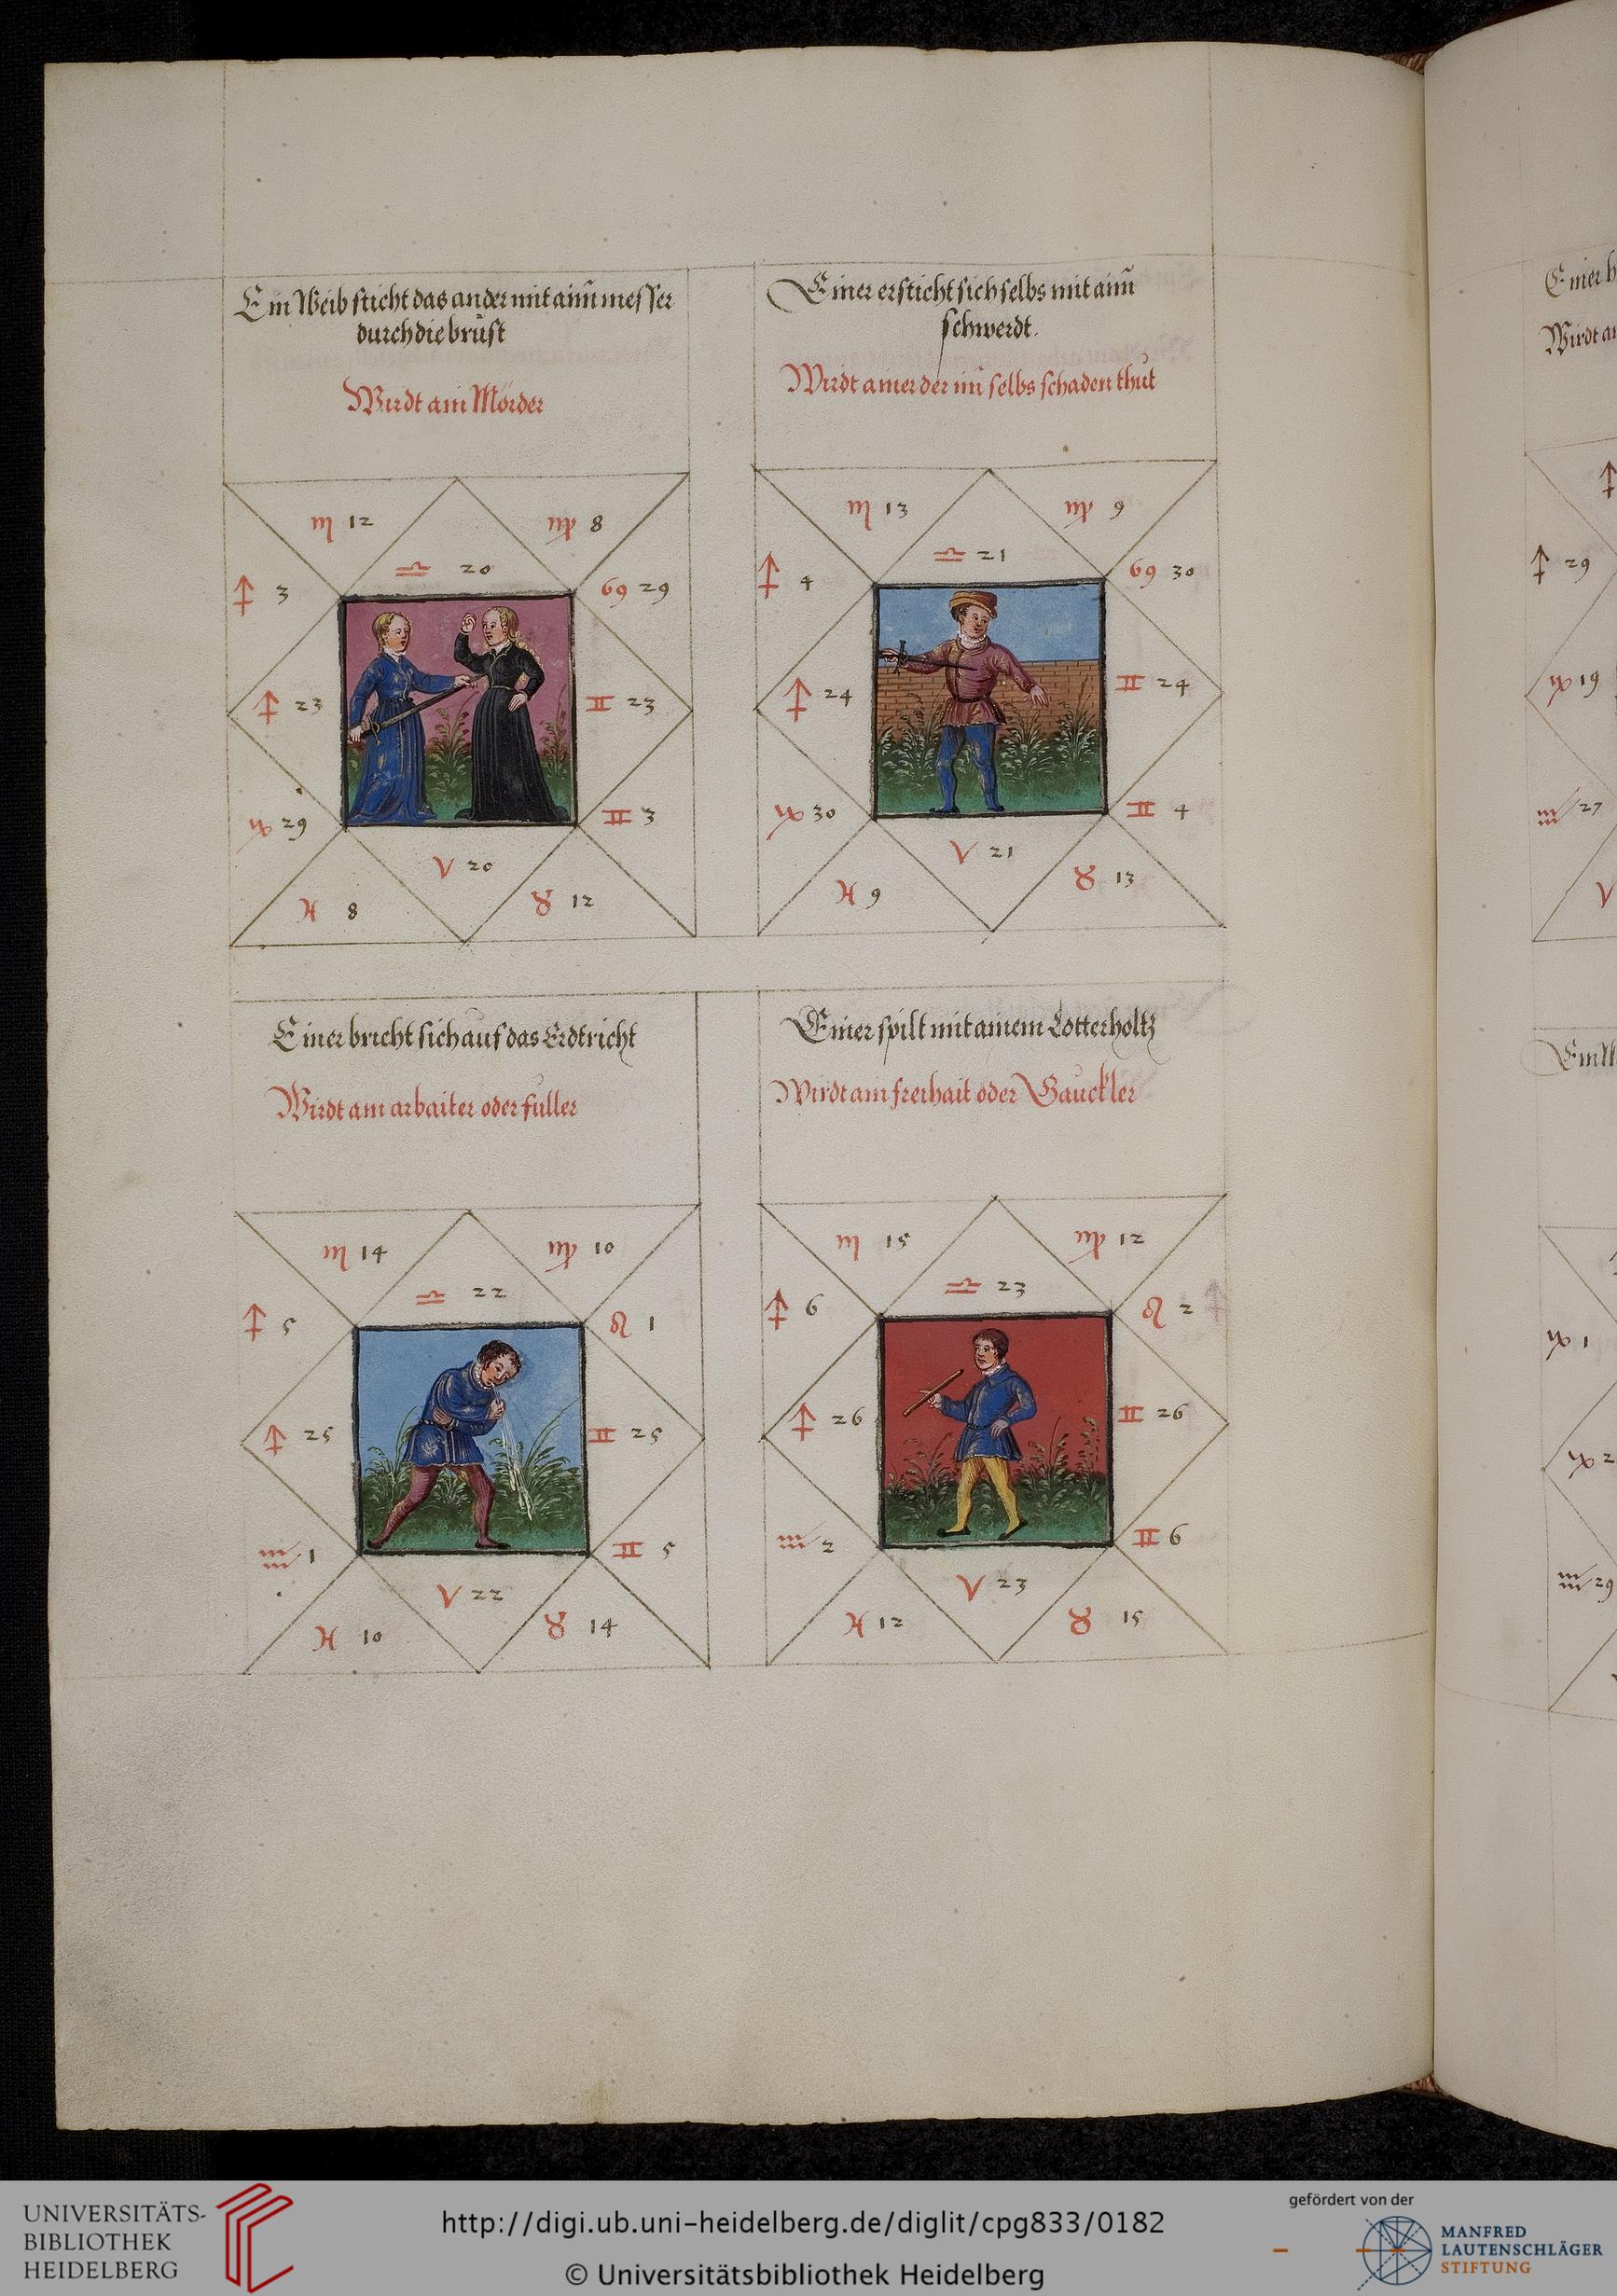 Ein Weib sticht das ander mit aim̄ messer
durch die brust
Wirdt ain Mörder
♏ 12
♍ 8
♎ 20
♐ 3
♋ 29
♐ 23
♊ 23
♑ 29
♊ 3
♈ 20
♓ 8
♉ 12
Einer ersticht sich selbs mit aim̄
schwerdt.
Wirdt ainer der im̄ selbs schaden thut
♏ 13
♍ 9
♎ 21
♐ 4
♋ 30
♐ 24
♊ 24
♑ 30
♊ 4
♈ 21
♓ 9
♉ 13
Einer bricht sich auf das Erdtricht
Wirdt ain arbaiter oder fuller
♏ 14
♍ 10
♎ 22
♐ 5
♌ 1
♐ 25
♊ 25
♒ 1
♊ 5
♈ 22
♓ 10
♉ 14
Einer spilt mit ainem Lotterholtz
Wirdt ain freihait oder Gauckler
♏ 15
♍ 12
♎ 23
♐ 6
♌ 2
♐ 26
♊ 26
♒ 2
♊ 6
♈ 23
♓ 12
♉ 15
♐ 29
♑ 19
♒ 27
♈
♑ 1
♑ 2
♒ 29
UNIVERSITÄTS-
BIBLIOTHEK
HEIDELBERG
http://digi.ub.uni-heidelberg.de/diglit/cpg833/0182
© Universitätsbibliothek Heidelberg
gefördert von der
MANFRED
LAUTENSCHLÄGER
STIFTUNG